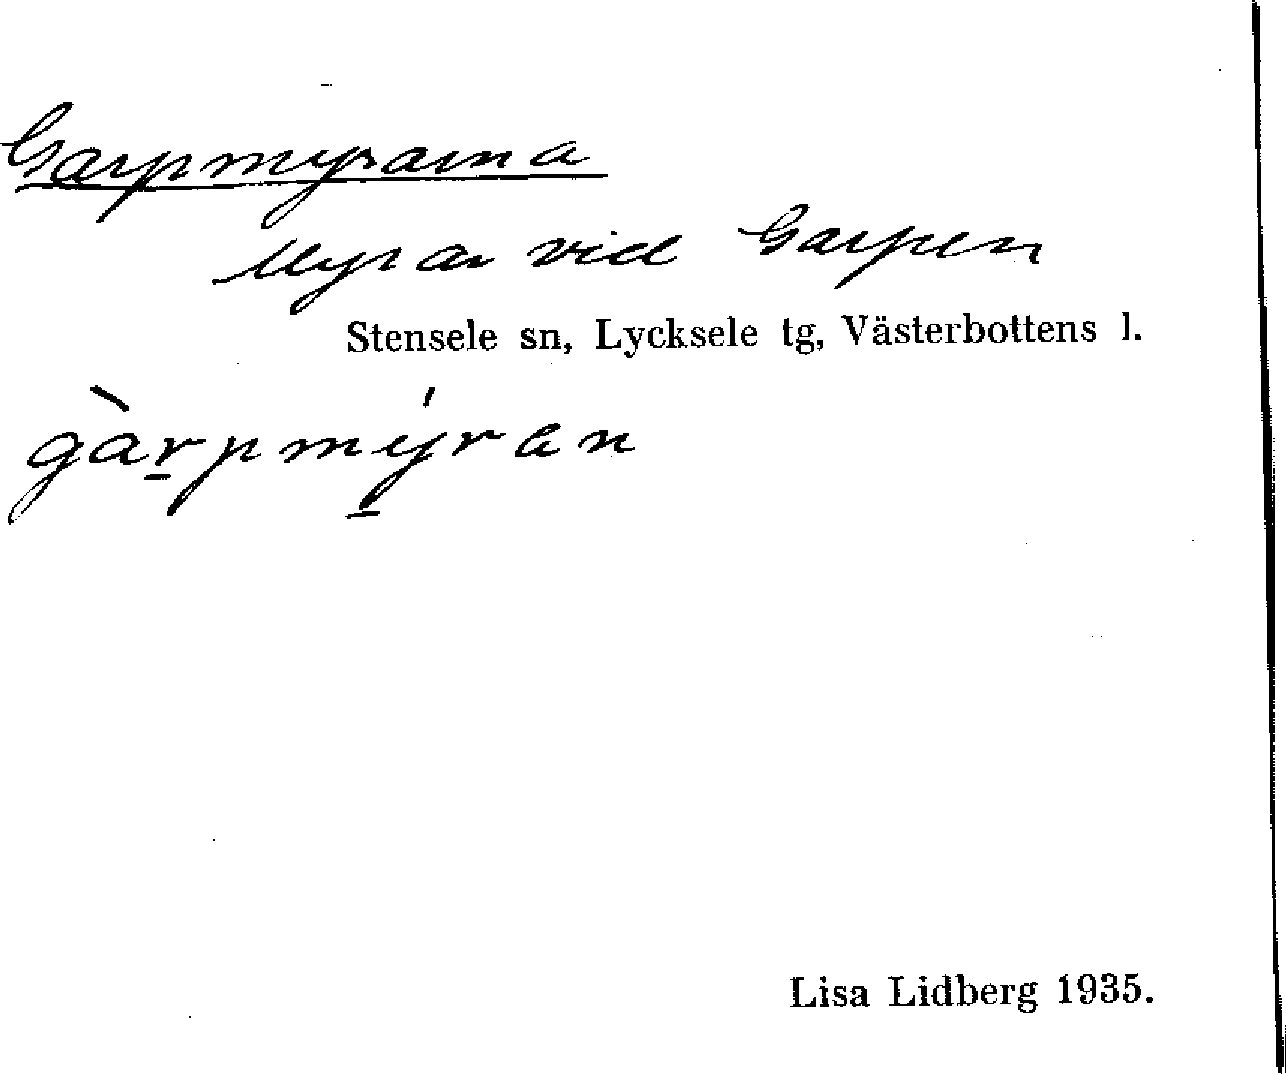 Garpmyrarna
Myrar vid Garpen
Stensele sn, Lycksele tg, Västerbottens l.
gàr̠pmý̠ran
Lisa Lidberg 1935.